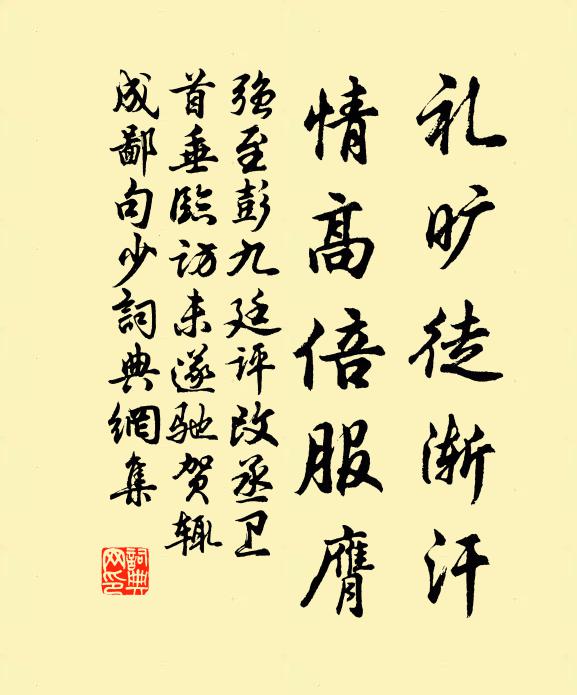 礼旷徒渐汗
情高倍服膺
强至彭九廷评改丞卫
首垂临访未遂驰贺辄
成鄙句少詞典網集
詞典网印